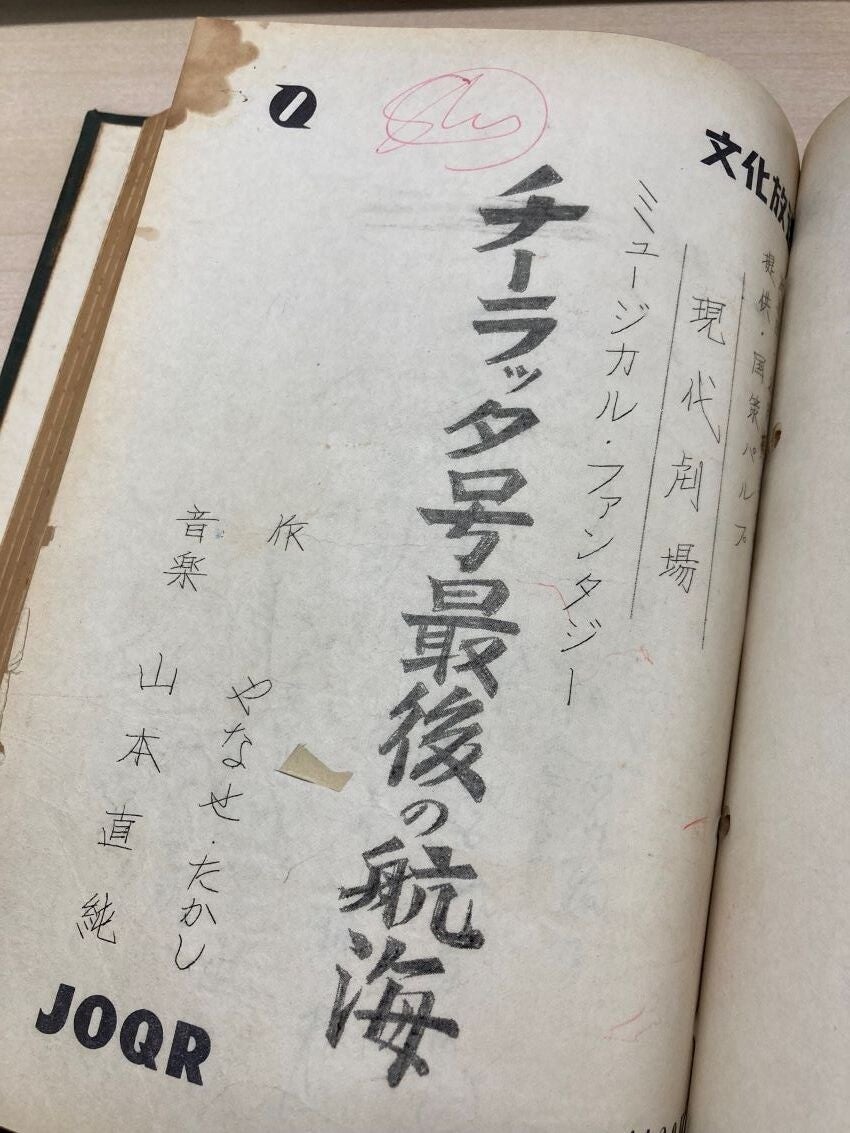 文化放
提供・国策パルプ
現代劇場
ミュージカル・ファンタジー
チーラッタ号最後の航海
作 やなせ・たかし
音楽 山本直純
JOQR